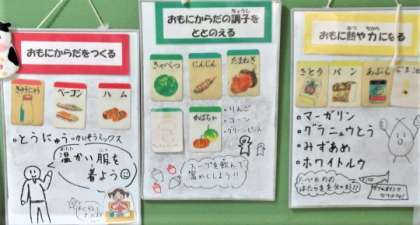 おもにからだをつくる
ぎゅうにゅう
ベーコン
ハム
・とうにゅう
温かい服を
着よう
おもにからだの調子を
ちょうし
ととのえる
きゃべつ
にんじん
たまねぎ
かぼちゃ
・りんご
・コーン
スープを飲んで
おもに熱や力になる
ねつ
ちから
さとう
パン
あぶら
・マーガリン
・グラニュウとう
・みずあめ
・ホワイトルウ